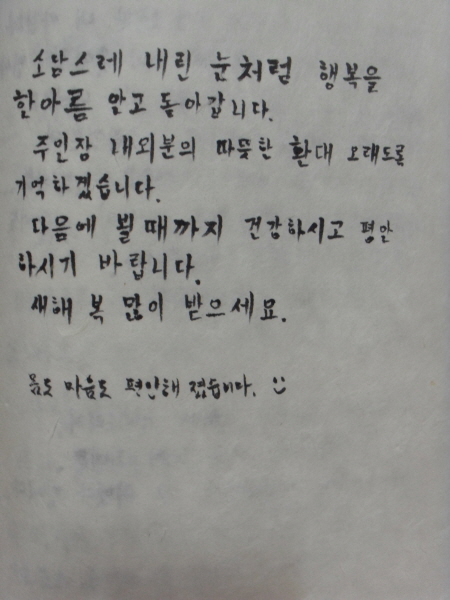 소담스레 내린 눈처럼 행복을
한아름 안고 돌아갑니다.
주인장 내외분의 따뜻한 환대 오래도록
기억하겠습니다.
다음에 뵐 때까지 건강하시고 평안
하시기 바랍니다.
새해 복 많이 받으세요.
몸도 마음도 편안해 졌습니다. :)